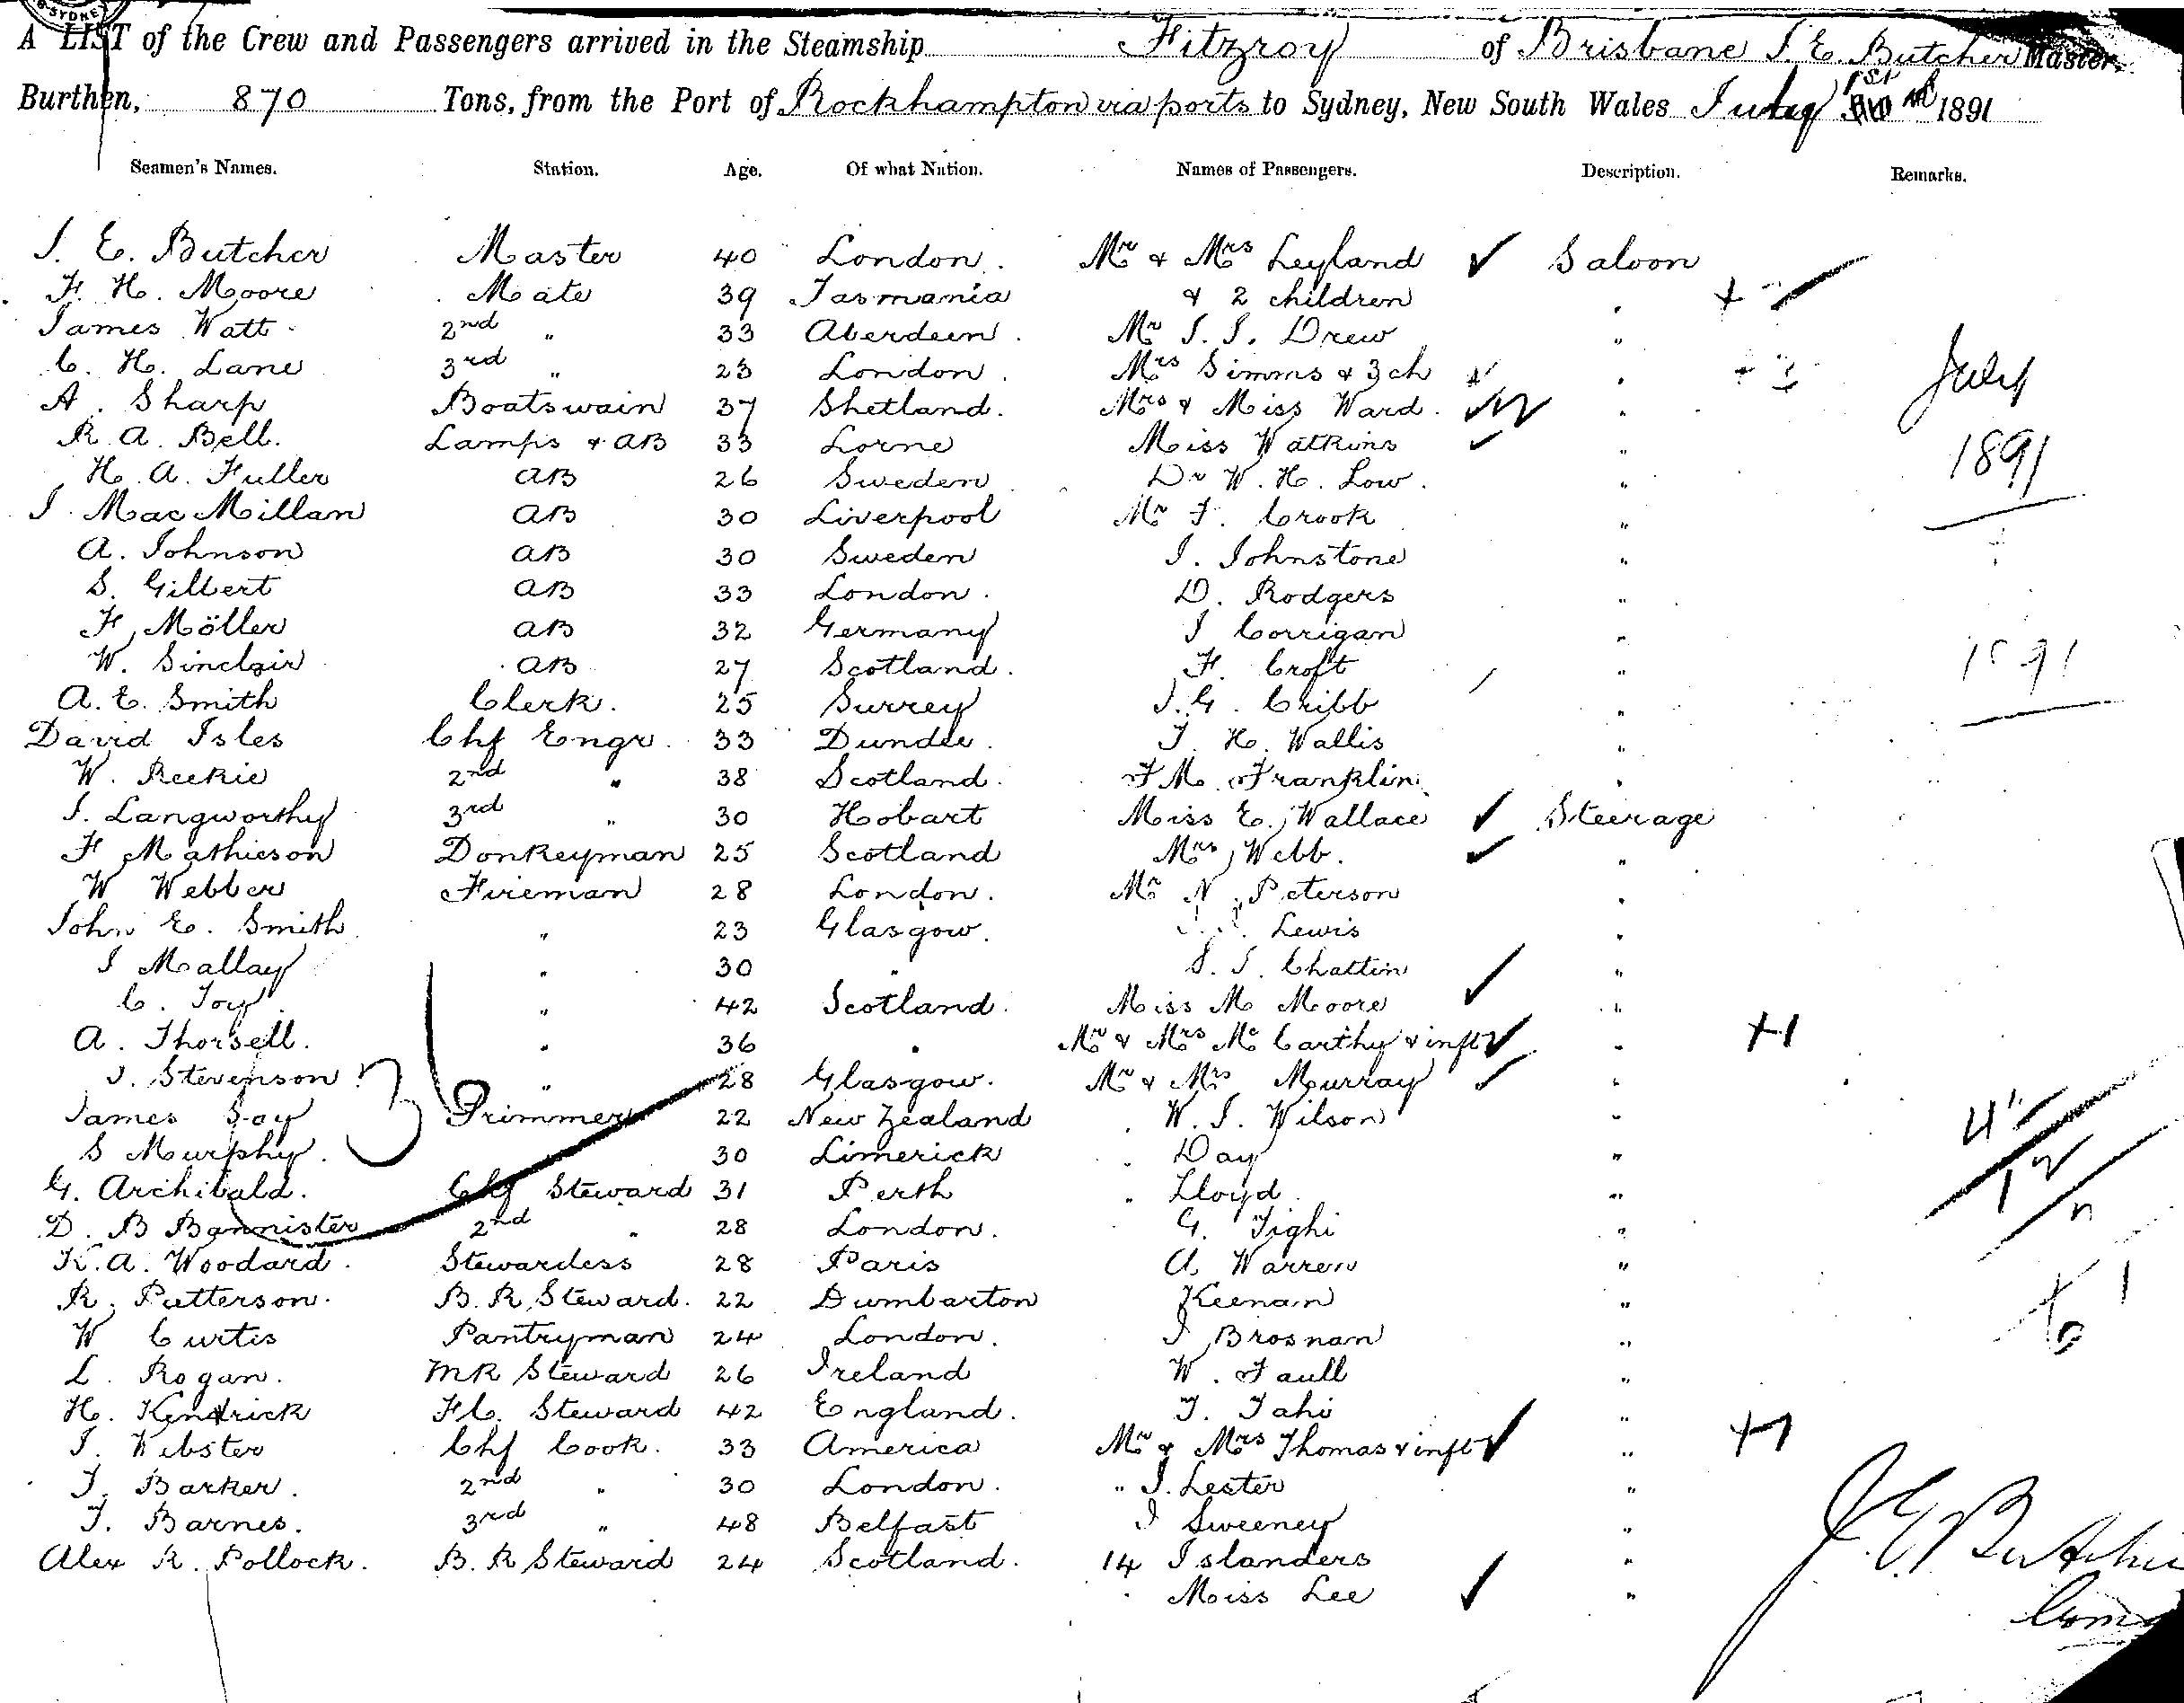 SYDNEY
A LIST of the Crew and Passengers arrived in the Steamship Fitzroy of Brisbane J. E. Butcher Master,
Burthen, 870 Tons, from the Port of Rockhampton via ports to Sydney, New South Wales July 1st 1891
Seamen's Names. Station. Age. Of what Nation. Names of Passengers. Description. Remarks.
J. E. Butcher Master 40 London. Mr & Mrs Leyland ✓ Saloon
F. H. Moore Mate 39 Tasmania & 2 children "
James Watt 2nd " 33 Aberdeen. Mr J. J. Drew "
C. H. Lane 3rd " 23 London. Mrs Simms & 3 ch "
July
A. Sharp Boatswain 37 Shetland. Mrs & Miss Ward. "
R. A. Bell. Lamps & AB 33 Lorne Miss Watkins ✓ "
1891
H. A. Fuller AB 26 Sweden Dr W. H. Low. "
J. MacMillan AB 30 Liverpool Mr F. Crook "
A. Johnson AB 30 Sweden J. Johnstone "
S. Gilbert AB 33 London. D. Rodgers "
F. Möller AB 32 Germany J Corrigan "
W. Sinclair AB 27 Scotland. F. Croft "
A. E. Smith Clerk. 25 Surrey J. G. Cribb "
David Isles Chf Engr. 33 Dundee. T. H. Wallis "
W. Reekie 2nd " 38 Scotland. F M. Franklin "
J. Langworthy 3rd " 30 Hobart Miss E. Wallace ✓ Steerage
F Mathieson Donkeyman 25 Scotland Mrs Webb. ✓ "
W Webber Fireman 28 London. Mr N. Peterson "
John E. Smith " 23 Glasgow. Lewis "
J Mallay " 30 " S. J. Chattin "
C. Toy " 42 Scotland. Miss M Moore ✓ "
A. Thorsell. " 36 " Mr & Mrs McCarthy & inft ✓ " +1
J. Stevenson " 28 Glasgow. Mr & Mrs Murray ✓ "
James Gay Trimmer 22 New Zealand W. J. Wilson "
S Murphy. 30 Limerick Day "
G. Archibald. Chf Steward 31 Perth " Lloyd "
D. B Bannister 2nd " 28 London. G. Tighi "
K. A. Woodard. Stewardess 28 Paris A. Warren "
R. Patterson. B. R. Steward. 22 Dumbarton Keenan "
W Curtis Pantryman 24 London. J Brosnan "
L. Rogan. MR Steward 26 Ireland W. Faull "
H. Kendrick F C. Steward 42 England. T. Tahi "
J. Webster Chf Cook. 33 America Mr & Mrs Thomas & inft ✓ " +1
T. Barker. 2nd " 30 London. " J. Lester "
T. Barnes. 3rd " 48 Belfast J Sweeney "
Alex R. Pollock. B. R Steward 24 Scotland. 14 Islanders "
Miss Lee ✓ "
J. E. Butcher